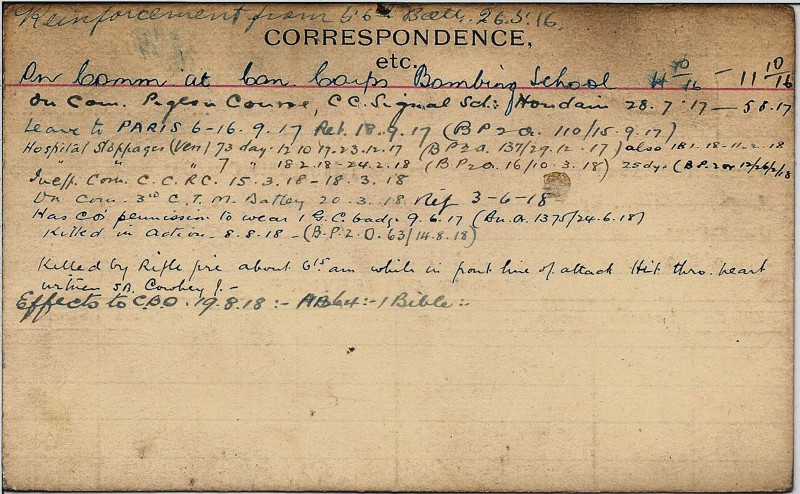 Reinforcement from 56th Batt. 26.5.16
CORRESPONDENCE,
etc.
On Comm. at Can Corps Bombing School 4 10/16 - 11 10/16
On Com. Pigeon Course, C.C. Signal Sch: Houdain 28.7.17 — 5.8.17
Leave to PARIS 6-16.9.17 Ret. 18.9.17 (B P 2 O. 110/15.9.17)
Hospital Stoppages (Ven) 73 day. 12.10.17-23.12.17 (B P 2 O. 137/29.12.17) also 18.1.18-11.2.18
" " " 7 " 18.2.18-24.2.18 (B.P.2 O. 16/10.3.18) 25 dys. (B.P.2 O. 12/26/2/18
Ineff. Com. C.C.R.C. 15.3.18-18.3.18
On Com. 3rd C.T.M. Batley 20.3.18 Rej 3-6-18
Has CO's permission to wear 1 G.C. badge 9.6.17 (Bn.O. 1375/24.6.18)
Killed in action - 8.8.18 - (B.P.2.O. 63/14.8.18)
Killed by Rifle fire about 6.15 am while in front line of attack Hit thro. heart
witness Cowley J. -
Effects to C.B.O. 19.8.18 :- AB64 :- 1 Bible :-